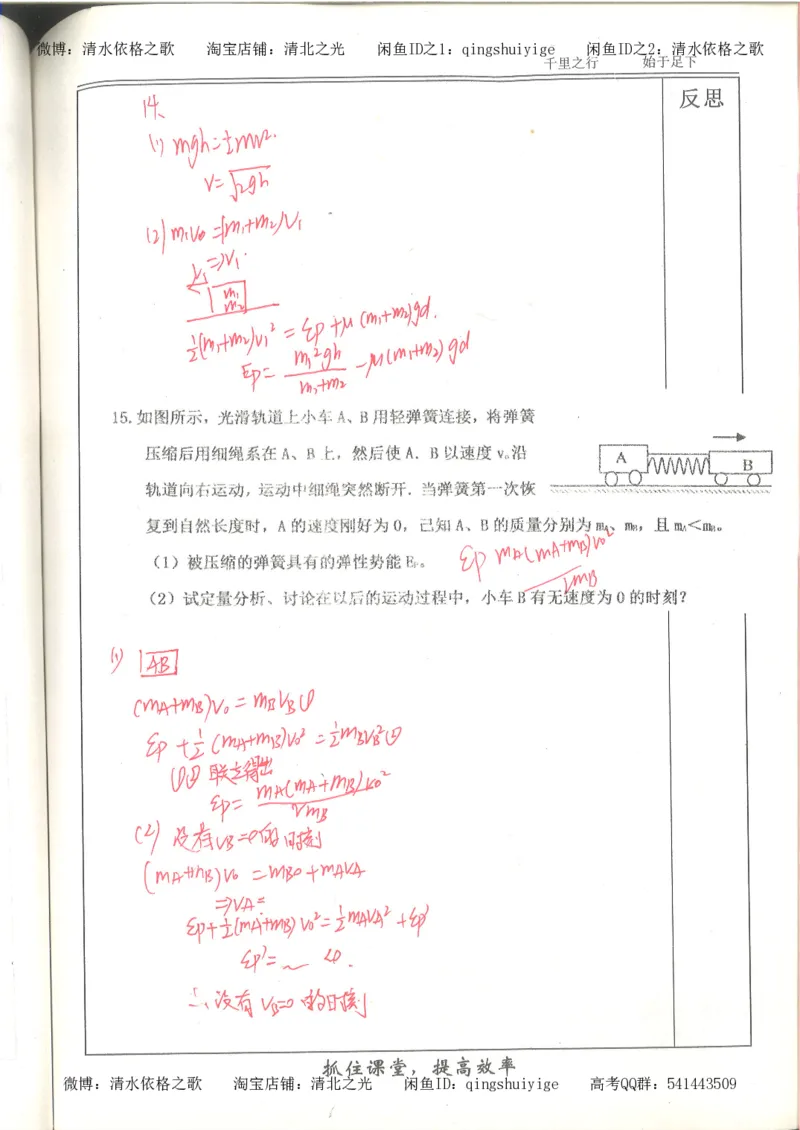 微博：清水依格之歌 淘宝店铺：清北之光 闲鱼ID之1：qingshuiyige 闲鱼ID之2：清水依格之歌
千里之行 始于足下
反思
14、
(1) mgh=½mv².
v=√2gh
(2) m₁v₀=(m₁+m₂)v₁
⇒v₁.
v₁
m₁
m₂
½(m₁+m₂)v₁² = Ep+μ(m₁+m₂)gd.
Ep= m₁²gh/(m₁+m₂) -μ(m₁+m₂)gd
15.如图所示，光滑轨道上小车 A、B 用轻弹簧连接，将弹簧
压缩后用细绳系在 A、B 上，然后使 A．B 以速度 v₀沿
轨道向右运动，运动中细绳突然断开．当弹簧第一次恢
复到自然长度时，A 的速度刚好为 0，已知 A、B 的质量分别为 mA、mB，且 mA＜mB。
A B
（1）被压缩的弹簧具有的弹性势能 EP。
Ep mA(mA+mB)v₀²/2mB
（2）试定量分析、讨论在以后的运动过程中，小车 B 有无速度为 0 的时刻？
(1) AB
(mA+mB)v₀=mBvB①
Ep+½(mA+mB)v₀²=½mBvB²②
①②联立得出
Ep= mA(mA+mB)v₀²/2mB
(2) 没有vB=0的时刻
(mA+mB)v₀ =mB0+mAvA
⇒vA=
Ep+½(mA+mB)v₀²=½mAvA²+Ep'
Ep'=～ <0.
∴没有vB=0的时刻
抓住课堂，提高效率
微博：清水依格之歌 淘宝店铺：清北之光 闲鱼ID：qingshuiyige 高考QQ群：541443509